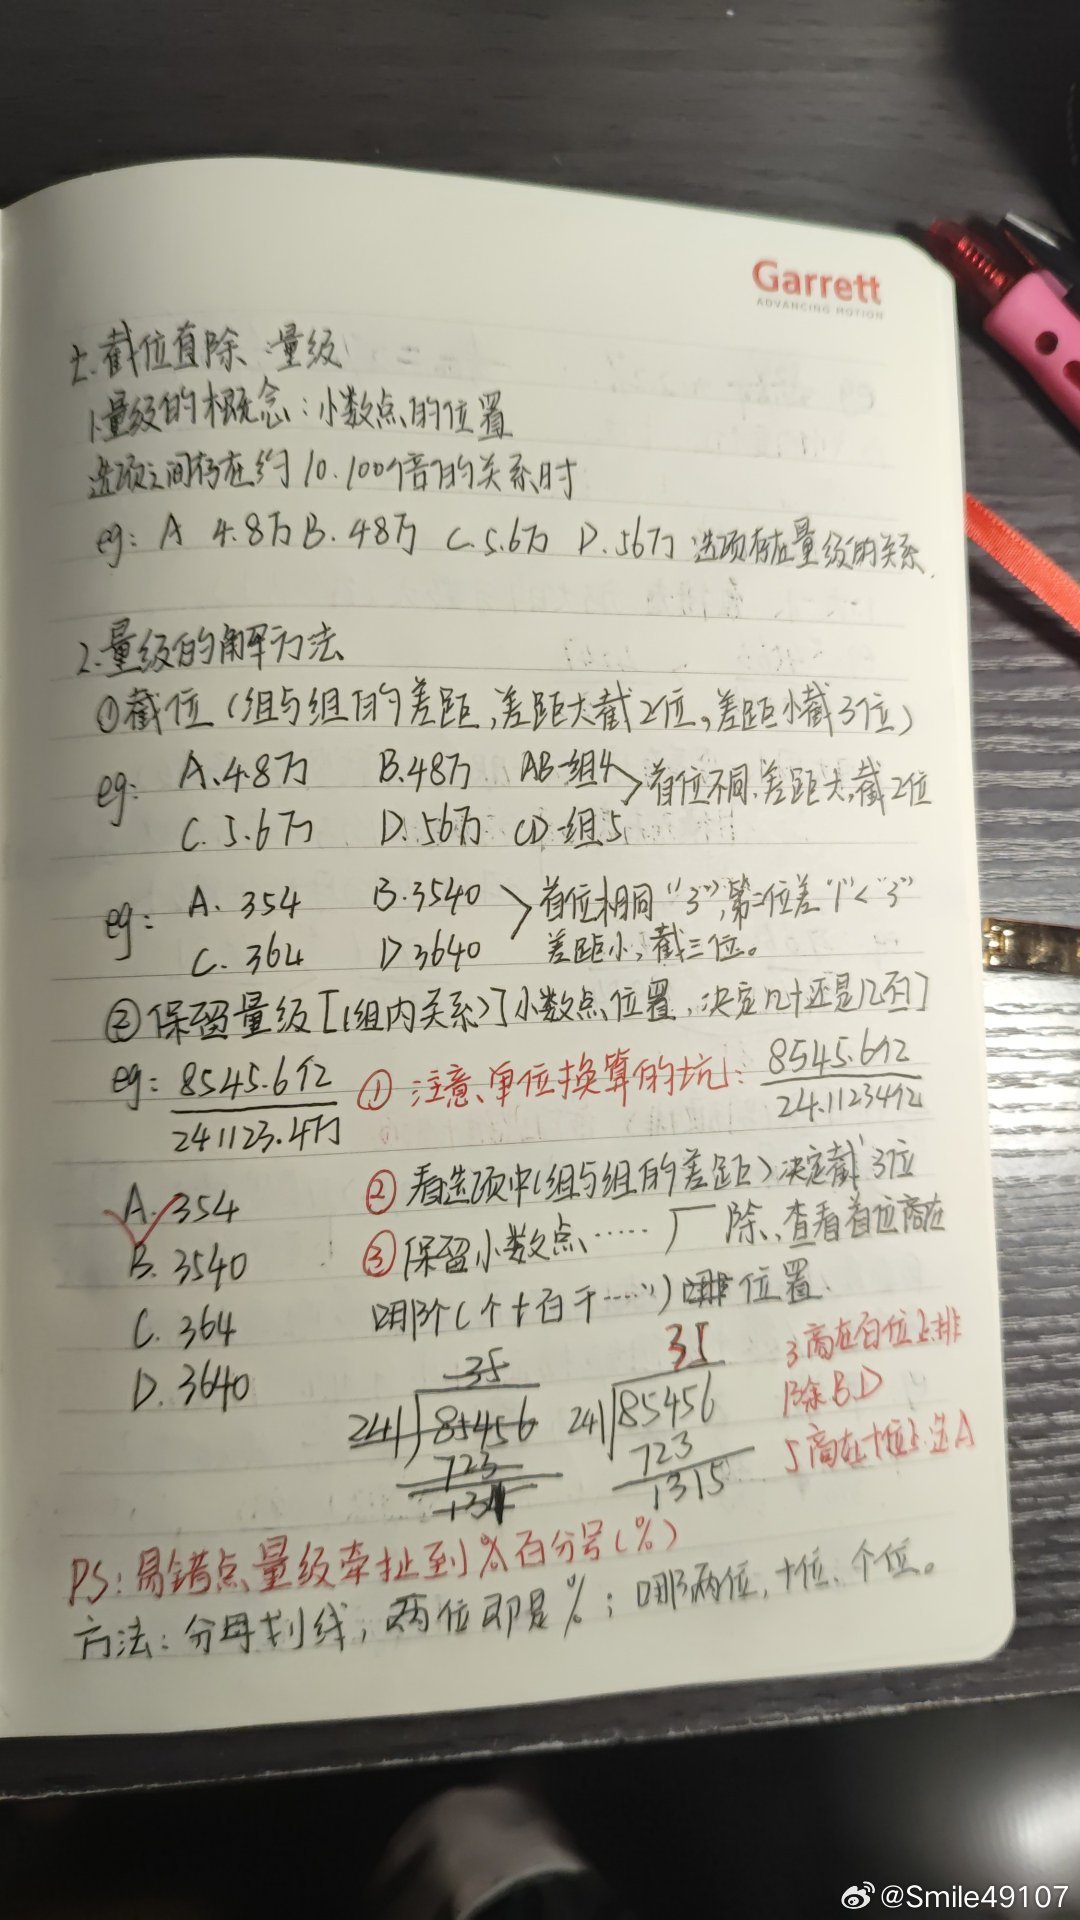 Garrett
ADVANCING MOTION
七.截位直除:量级
1.量级的概念:小数点的位置
选项之间存在约10.100个倍的关系时
eg: A 4.8万 B.48万 C.5.6万 D.56万 选项存在量级的关系.
2.量级的解方法
①截位(组与组的差距,差距大截2位,差距小截3位)
eg: A.4.8万 B.48万 AB一组4
C.5.6万 D.56万 CD一组5
首位不同.差距大,截2位
eg: A. 354 B.3540
C. 364 D 3640
首位相同"3",第二位差"1"<"3"
差距小,截三位。
②保留量级[(组内关系)]小数点位置,决定几十还是几百]
eg: 8545.6亿
241123.4万
①注意单位换算的坑:
8545.6亿
24.11234亿
A. 354
B. 3540
C. 364
D. 3640
②看选项中(组与组的差距)决定截3位
③保留小数点……厂除,查看首位商在
哪个(个十百千……)位置.
35
241 85456
723
35
241 85456
723
1315
3商在百位上排
除B.D
5商在十位上.选A
PS:易错点量级牵扯到%百分号(%)
方法:分母划线,两位即是%;哪两位,十位、个位。
@Smile49107